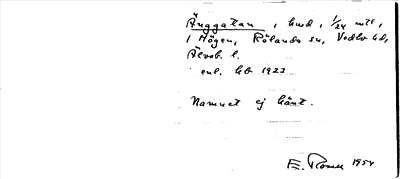 Änggatan, hmd, 1/24 mtl,
i Högen, Rölanda sn, Vedbo hd,
Älvsb. l.
enl. hb 1923
Namnet ej känt.
E. Rosen 1954